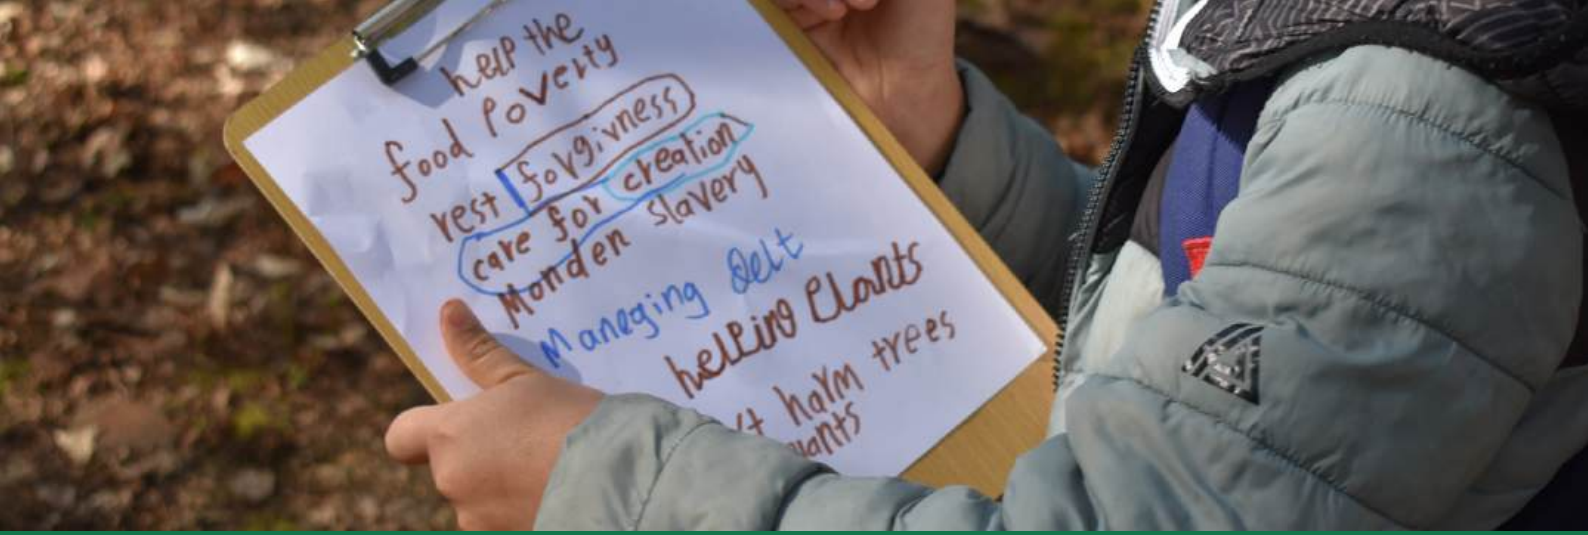 help the
food poverty
rest forgivness
care for creation
Monden slavery
Maneging Delt
helping Plants
harm trees